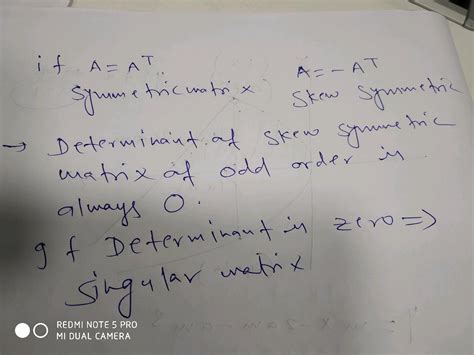 if A = Aᵀ A = - Aᵀ
Symmetric matrix Skew Symmetric
→ Determinant of skew symmetric
matrix of odd order is
always 0.
If Determinant is zero ⇒
Singular matrix
REDMI NOTE 5 PRO
MI DUAL CAMERA